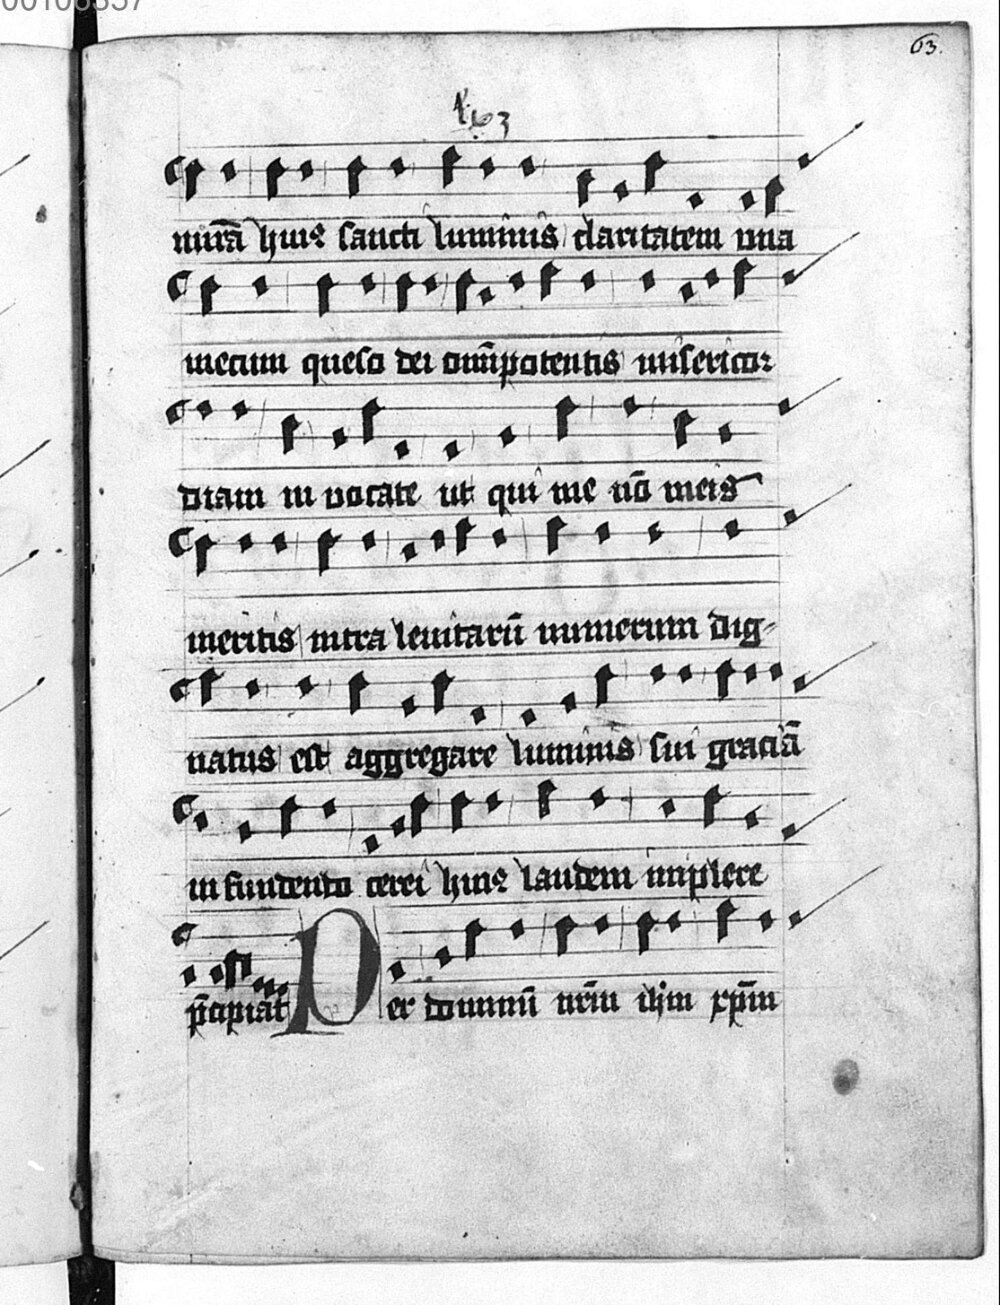 00106357
63.
63
mirā huiꝰ sancti luminis claritatem una
mecum queso dei om̄ipotentis misericor
diam in vocate ut qui me nō meis
meritis intra levitarū numerum dig-
natus est aggregare luminis sui graciā
infundendo cerei huiꝰ laudem implere
p̄cipiat Per dominū nr̄m ihm xp̄m